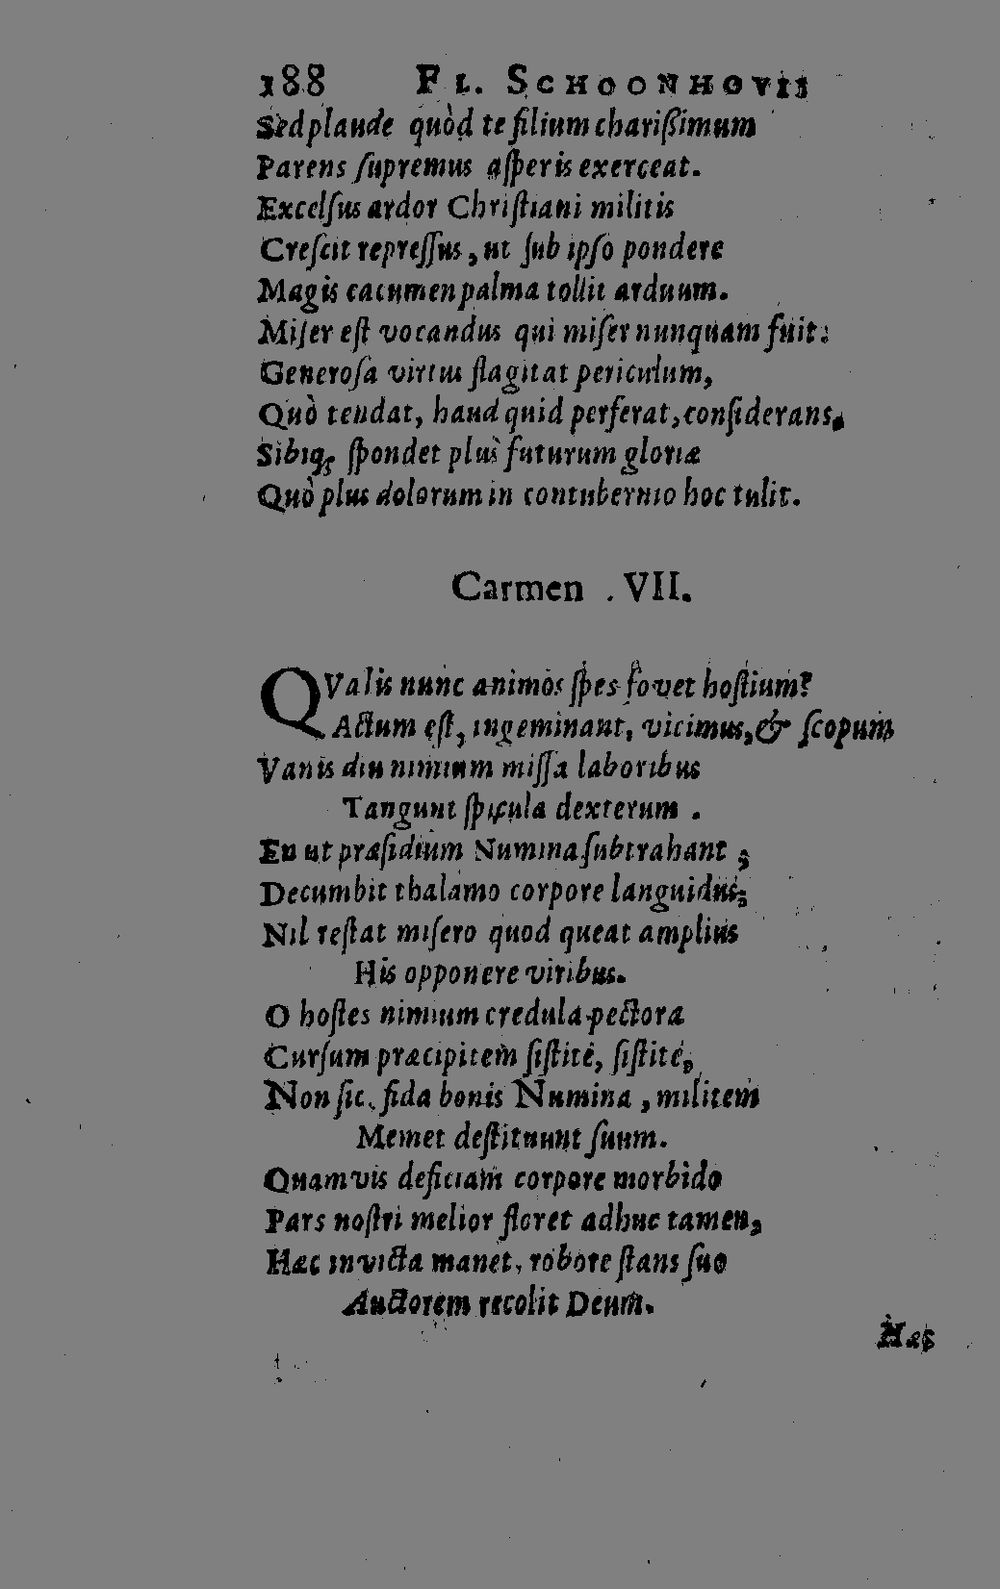 188 FL. SCHOONHOVII
Sed plaude quòd te filium charißimum
Parens ſupremus aſperis exerceat.
Excelſus ardor Chriſtiani militis
Creſcit repreſſus, ut ſub ipſo pondere
Magis cacumen palma tollit arduum.
Miſer eſt vocandus qui miſer nunquam fuit:
Generoſa virtus flagitat periculum,
Quò tendat, haud quid perferat, conſiderans,
Sibiq; ſpondet plus futurum gloriæ
Quò plus dolorum in contubernio hoc tulit.
Carmen .VII.
QValis nunc animos ſpes fovet hoſtium?
Actum eſt, ingeminant, vicimus, & ſcopum
Vanis diu nimium miſſa laboribus
Tangunt ſpicula dexterum .
En ut præſidium Numina ſubtrahant ;
Decumbit thalamo corpore languidus;
Nil reſtat miſero quod queat amplius
His opponere viribus.
O hoſtes nimium credula pectora
Curſum præcipitem ſiſtite, ſiſtite,
Non ſic, fida bonis Numina , militem
Memet deſtituunt ſuum.
Quamvis deficiam corpore morbido
Pars noſtri melior floret adhuc tamen,
Hæc invicta manet, robore ſtans ſuo
Auctorem recolit Deum.
Hæc